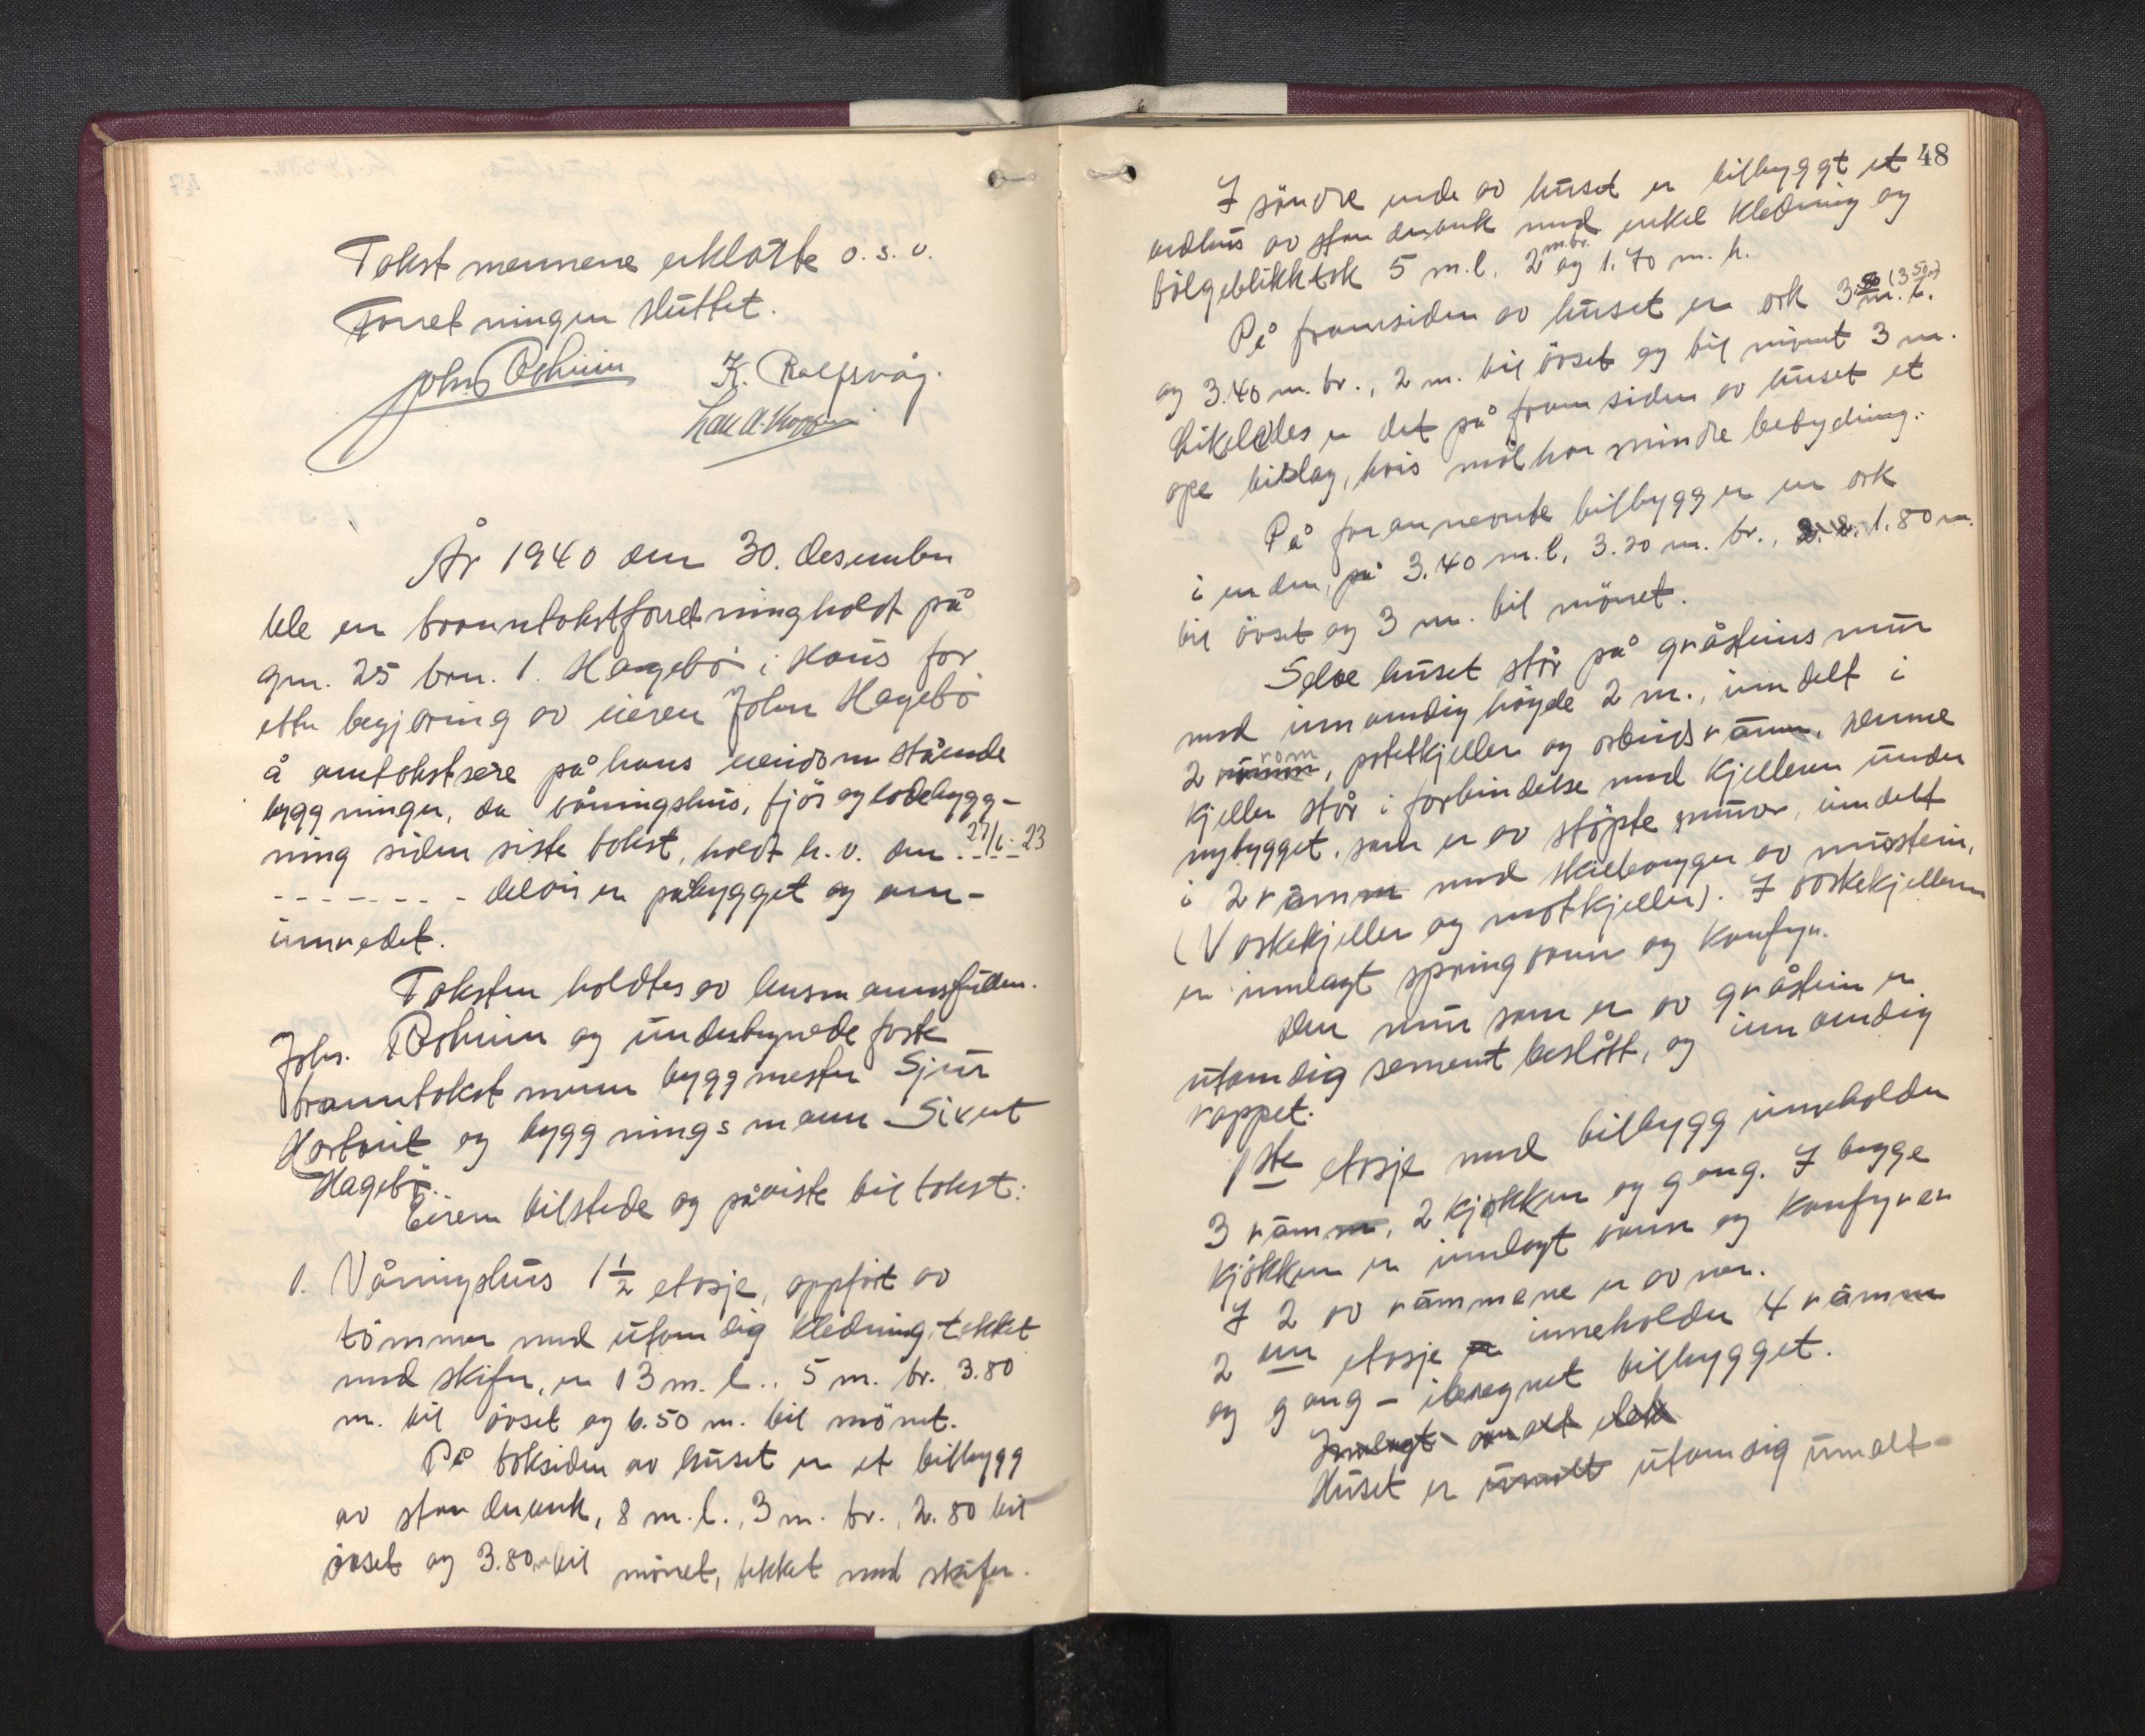 Takstmennene erklærte o. s. v.
Forretningen sluttet.
K. Rolfsvåg.
År 1940 den 30. desember
ble en branntakstforretning holdt på
gnr. 25 brn. 1. Hagebö i Haus for
etter begjæring av eieren John Hagebö
å omtakstsere på hans eiendom stående
byggninger, da våningshus, fjös og lödebygg-
ning siden siste takst, holdt h. v. den 27/6-23
- - - - - - - - delvis er påbygget og om-
innredet.
Taksten holdtes av lensmannsfullm.
Johs. og undertegnede faste
branntakstmenn byggmester Sjur
og byggningsmann Sivert
Hagebö.
Eieren tilstede og påviste til takst:
1. Våningshus 1 1/2 etasje, oppfört av
tömmer med utvendig kledning, tekket
med skifer, er 13 m. l., 5 m. br. 3.80
m. til övset og 6.50 m. til mönet.
På baksiden av huset er et tilbygg
av stenderverk, 8 m. l., 3 m. br., 2.80 til
övset og 3.80 m til mönet, tekket med skifer.
48
I söndre ende av huset er tilbyggt et
vedhus av stenderverk med enkel kledning og
bölgeblikktak 5 m. l. 2 m. br. og 1.70 m. h.
På framsiden av huset er ark 3.50 (3 50 m) m. l.
og 3.40 m. br., 2 m. til övset og til mönet 3 m.
Likeledes er det på framsiden av huset et
ope bislag, hvis mål har mindre betydning.
På forannevnte tilbygg er en ark
i enden, på 3.40 m. l, 3.20 m. br., 1.80 m.
til övset og 3 m. til mönet.
Selve huset står på gråsteins mur
med innvendig höyde 2 m., inndelt i
2 rom, potetkjeller og arbeidsrämm, denne
kjeller står i forbindelse med kjelleren under
nybygget, som er av stöpte murer, inndelt
i 2 rämm med skillevegger av murstein,
(Vaskekjeller og matkjeller). I vaskekjelleren
er innlagt springvann og komfyr.
Den mur som er av gråstein er
utvendig sement beslått, og innvendig
rappet.
1ste etasje med tilbygg inneholder
3 rämm, 2 kjökken og gang. I begge
kjökken er innlagt vann og komfyrer
I 2 av rämmene er ovner.
2 en etasje er inneholder 4 rämm
og gang - iberegnet tilbygget.
Innlagt
Huset er ümalt utvendig umalt -